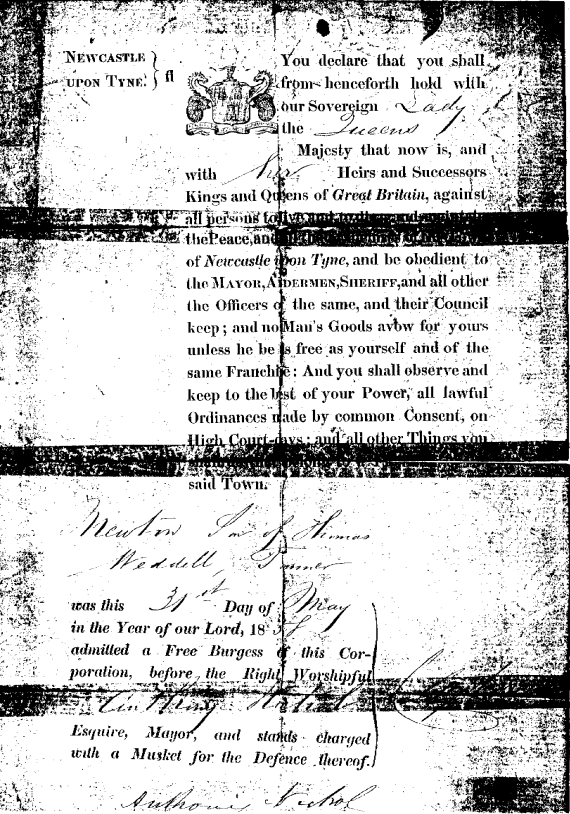 NEWCASTLE
UPON TYNE.
You declare that you shall
from henceforth hold with
our Sovereign Lady
the Queens
Majesty that now is, and
with her Heirs and Successors
Kings and Queens of Great Britain, against
all persons to live and to
the Peace, and all the
of Newcastle upon Tyne, and be obedient to
the MAYOR, ALDERMEN, SHERIFF, and all other
the Officers of the same, and their Council
keep; and no Man's Goods avow for yours
unless he be as free as yourself and of the
same Franchise: And you shall observe and
keep to the best of your Power, all lawful
Ordinances made by common Consent, on
High Court-days; and all other Things you
said Town.
Newton Son of Thomas
Weddell,
was this 31st Day of May
in the Year of our Lord, 185
admitted a Free Burgess of this Cor-
poration, before the Right Worshipful
Anthony Nichol
Esquire, Mayor, and stands charged
with a Musket for the Defence thereof.
Anthony Nichol